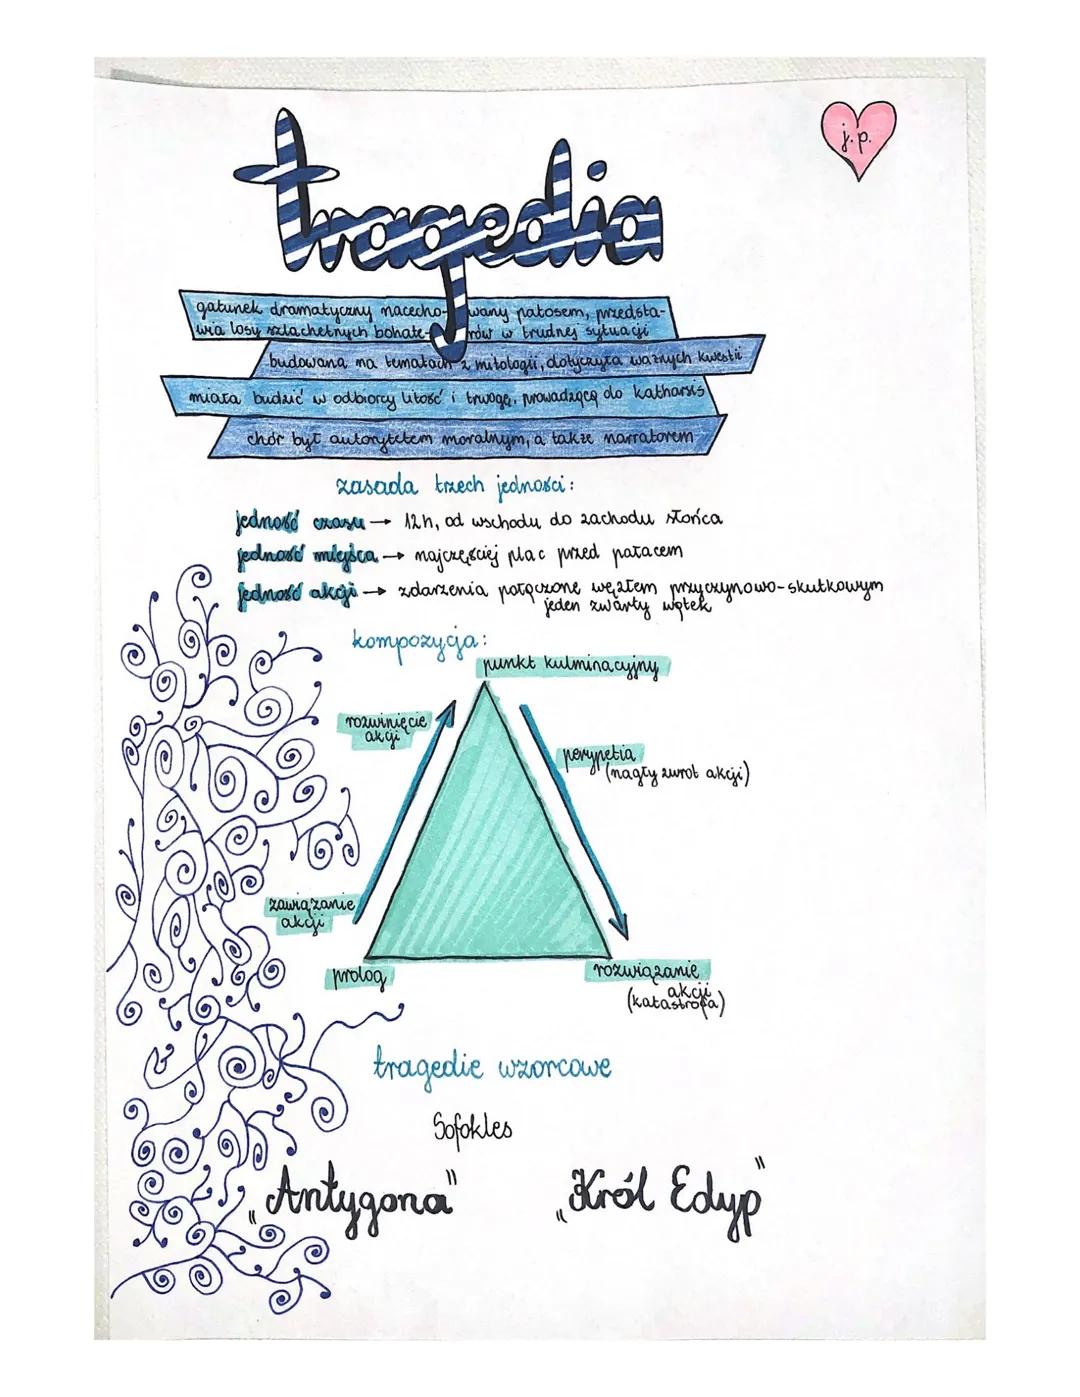 j.p.
tragedia
gatunek dramatyczny nacechowany patosem, przedsta-
wia losy szlachetnych bohaterów w trudnej sytuacji
budowana na tematach z mitologii, dotyczyła ważnych kwestii
miała budzić w odbiorcy litość i trwogę, prowadzącą do katharsis
chór był autorytetem moralnym, a także narratorem
zasada trzech jedności:
jedność czasu → 12h, od wschodu do zachodu słońca
jedność miejsca → najczęściej plac przed pałacem
jedność akcji → zdarzenia połączone węzłem przyczynowo-skutkowym
jeden zwarty wątek
kompozycja:
punkt kulminacyjny
rozwinięcie
akcji
perypetia
(nagły zwrot akcji)
zawiązanie
akcji
prolog
rozwiązanie
akcji
(katastrofa)
tragedie wzorcowe
Sofokles
„Antygona" „Król Edyp"